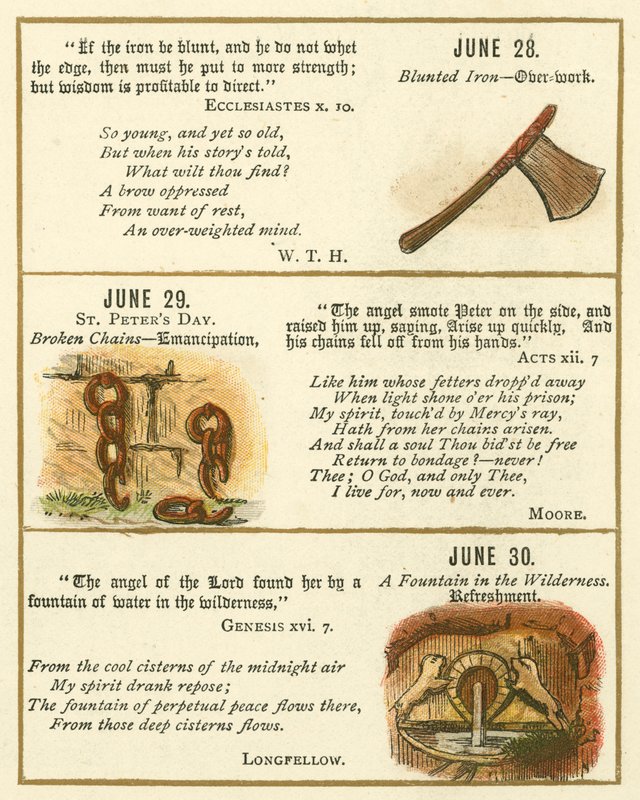 "If the iron be blunt, and he do not whet
the edge, then must he put to more strength;
but wisdom is profitable to direct."
Ecclesiastes x. 10.
So young, and yet so old,
But when his story's told,
What wilt thou find?
A brow oppressed
From want of rest,
An over-weighted mind.
W. T. H.
JUNE 28.
Blunted Iron—Over-work.
JUNE 29.
St. Peter's Day.
Broken Chains—Emancipation,
"The angel smote Peter on the side, and
raised him up, saying, Arise up quickly, And
his chains fell off from his hands."
Acts xii. 7
Like him whose fetters dropp'd away
When light shone o'er his prison;
My spirit, touch'd by Mercy's ray,
Hath from her chains arisen.
And shall a soul Thou bid'st be free
Return to bondage?—never!
Thee; O God, and only Thee,
I live for, now and ever.
Moore.
"The angel of the Lord found her by a
fountain of water in the wilderness,"
Genesis xvi. 7.
From the cool cisterns of the midnight air
My spirit drank repose;
The fountain of perpetual peace flows there,
From those deep cisterns flows.
Longfellow.
JUNE 30.
A Fountain in the Wilderness.
Refreshment.